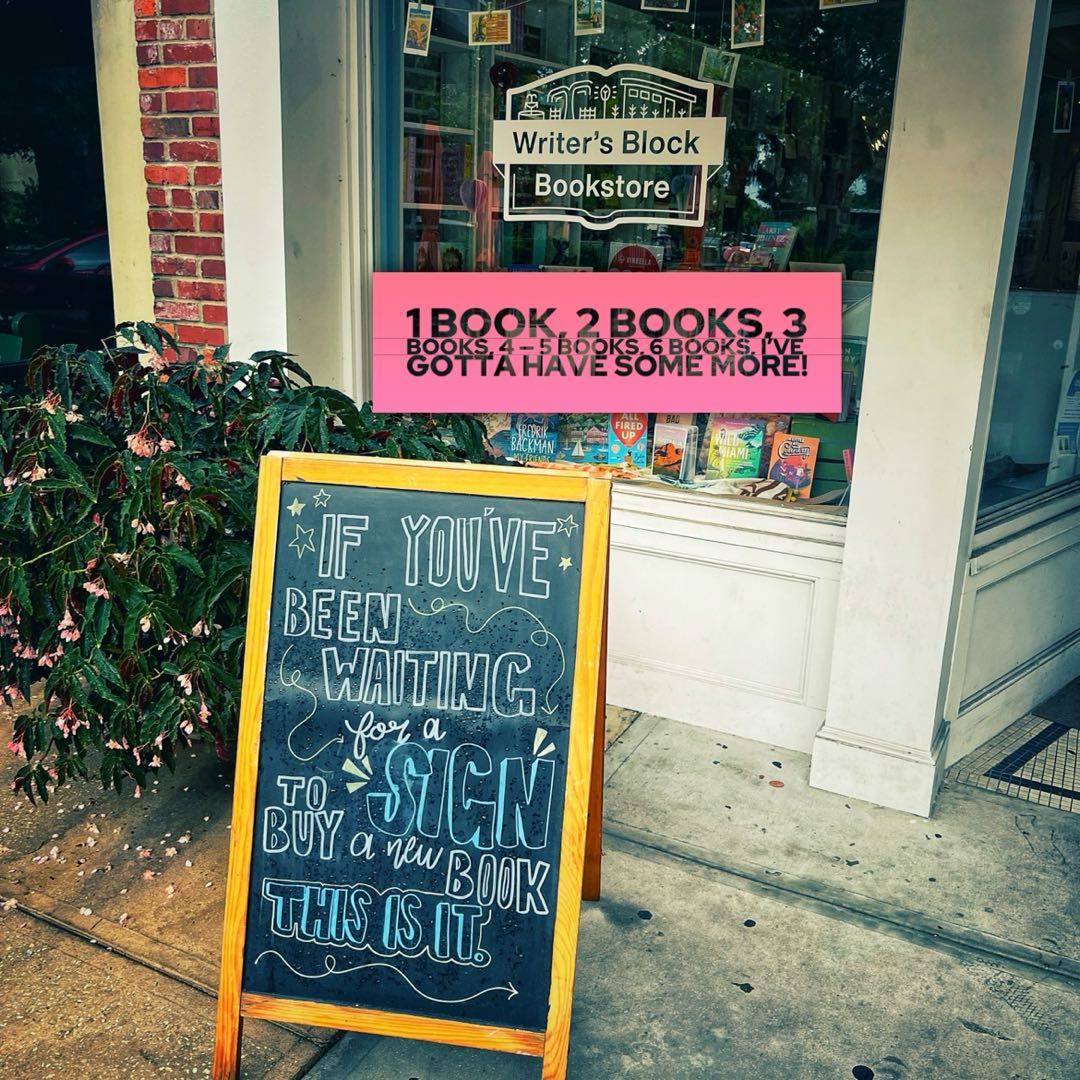 Writer's Block
Bookstore
1 BOOK, 2 BOOKS, 3
BOOKS, 4 – 5 BOOKS, 6 BOOKS, I'VE
GOTTA HAVE SOME MORE!
FREDRIK
BACKMAN
MY FRIENDS
ALL
FIRED
UP
MIAMI
IF YOU'VE
BEEN
WAITING
for a
SIGN
TO
BUY a new
BOOK
THIS IS IT.